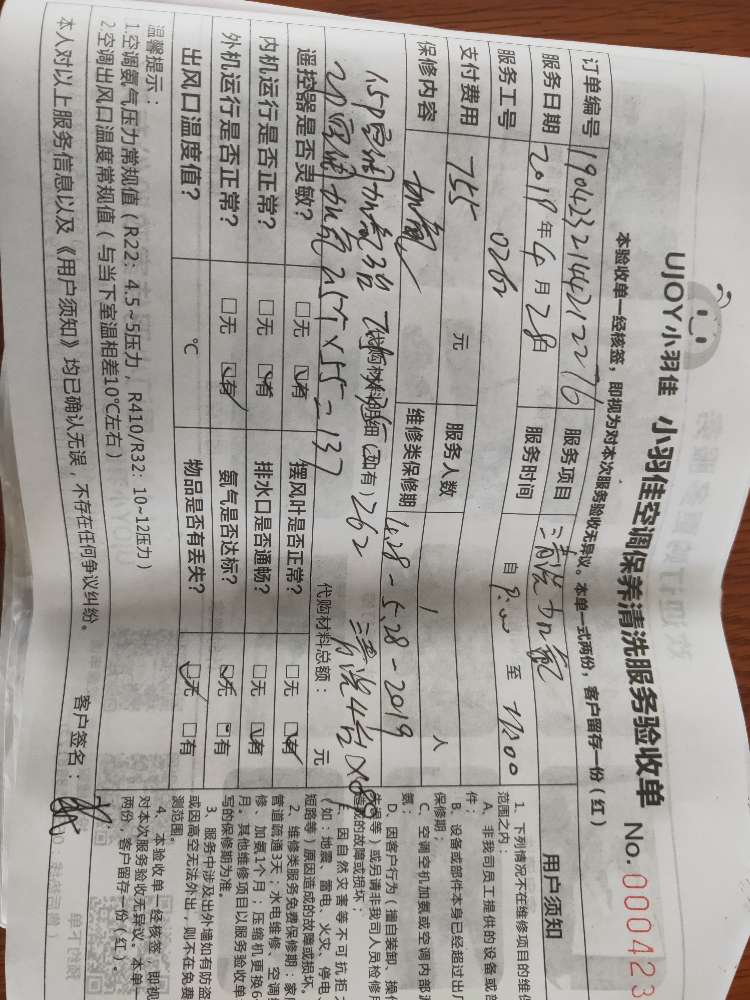 UJOY小羽佳 小羽佳空调保养清洗服务验收单 No. 000423
本验收单一经核签，即视为对本次服务验收无异议。本单一式两份，客户留存一份（红）
订单编号 1904232144212276 服务项目 清洗加氟
服务日期 2019年4月28日 服务时间 自 至 17:00
服务工号 0262
支付费用 755 元 服务人数 1 人
保修内容 加氟 维修类保修期 4.28-5.28-2019
代购材料明细（如有） 262 清洗4台
代购材料总额： 元
遥控器是否灵敏？ □无 □有 摆风叶是否正常？ □无 □有
内机运行是否正常？ □无 □有 排水口是否通畅？ □无 □有
外机运行是否正常？ □无 □有 氨气是否达标？ □无 □有
出风口温度值？ ℃ 物品是否有丢失？ □无 □有
温馨提示：
1.空调氨气压力常规值（R22：4.5~5压力，R410/R32：10~12压力）
2.空调出风口温度常规值（与当下室温相差10℃左右）
本人对以上服务信息以及《用户须知》均已确认无误，不存在任何争议纠纷。 客户签名：
用户须知
1、下列情况不在维修项目的维保
范围之内：
A、非我司员工提供的设备或
件；
B、设备或部件本身已经超过出厂
保修期；
C、空调空机加氨或空调内部
氨；
D、因客户行为（擅自装卸、操作
失误等）或另请非我司人员检修
造成的故障或损坏；
E、因自然灾害等不可抗拒
（如：地震、雷电、火灾、停电、
短路等）原因造成的故障或损坏。
2、维修类服务免费保修期：家
管道疏通3天；水电维修、空调
修、加氨1个月；压缩机更换6
月。其他维修项目以服务验收单
写的保修期为准。
3、服务中涉及出外墙如有防盗
或因高空无法外出，则不在免费
测范围。
4、本验收单一经核签，即视
对本次服务验收无异议。本单一
两份，客户留存一份（红）。